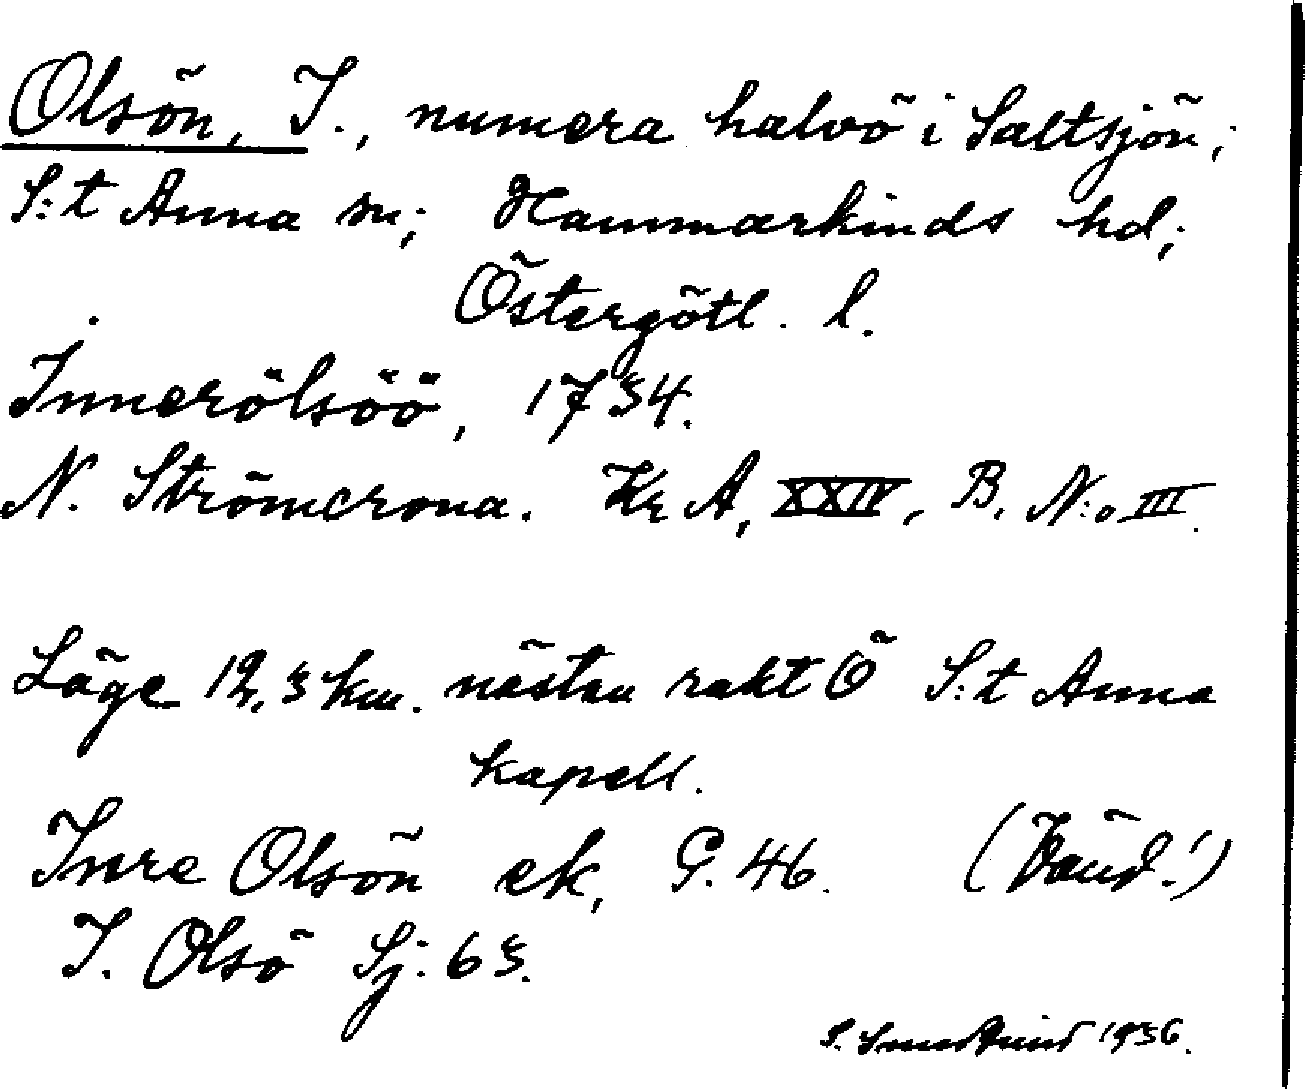 Olsön, I., numera halvö i Saltsjön;
S:t Anna sn; Hammarkinds hd;
Östergötl. l.
Innerölsöö, 1734.
N. Strömcrona. Kr A, XXIV, B. N:o III.
Läge 12,3 km. nästan rakt Ö S:t Anna
kapell.
Inre Olsön ek, G. 46. (Vänd!)
I. Olsö Sj: 63.
S. 1936.